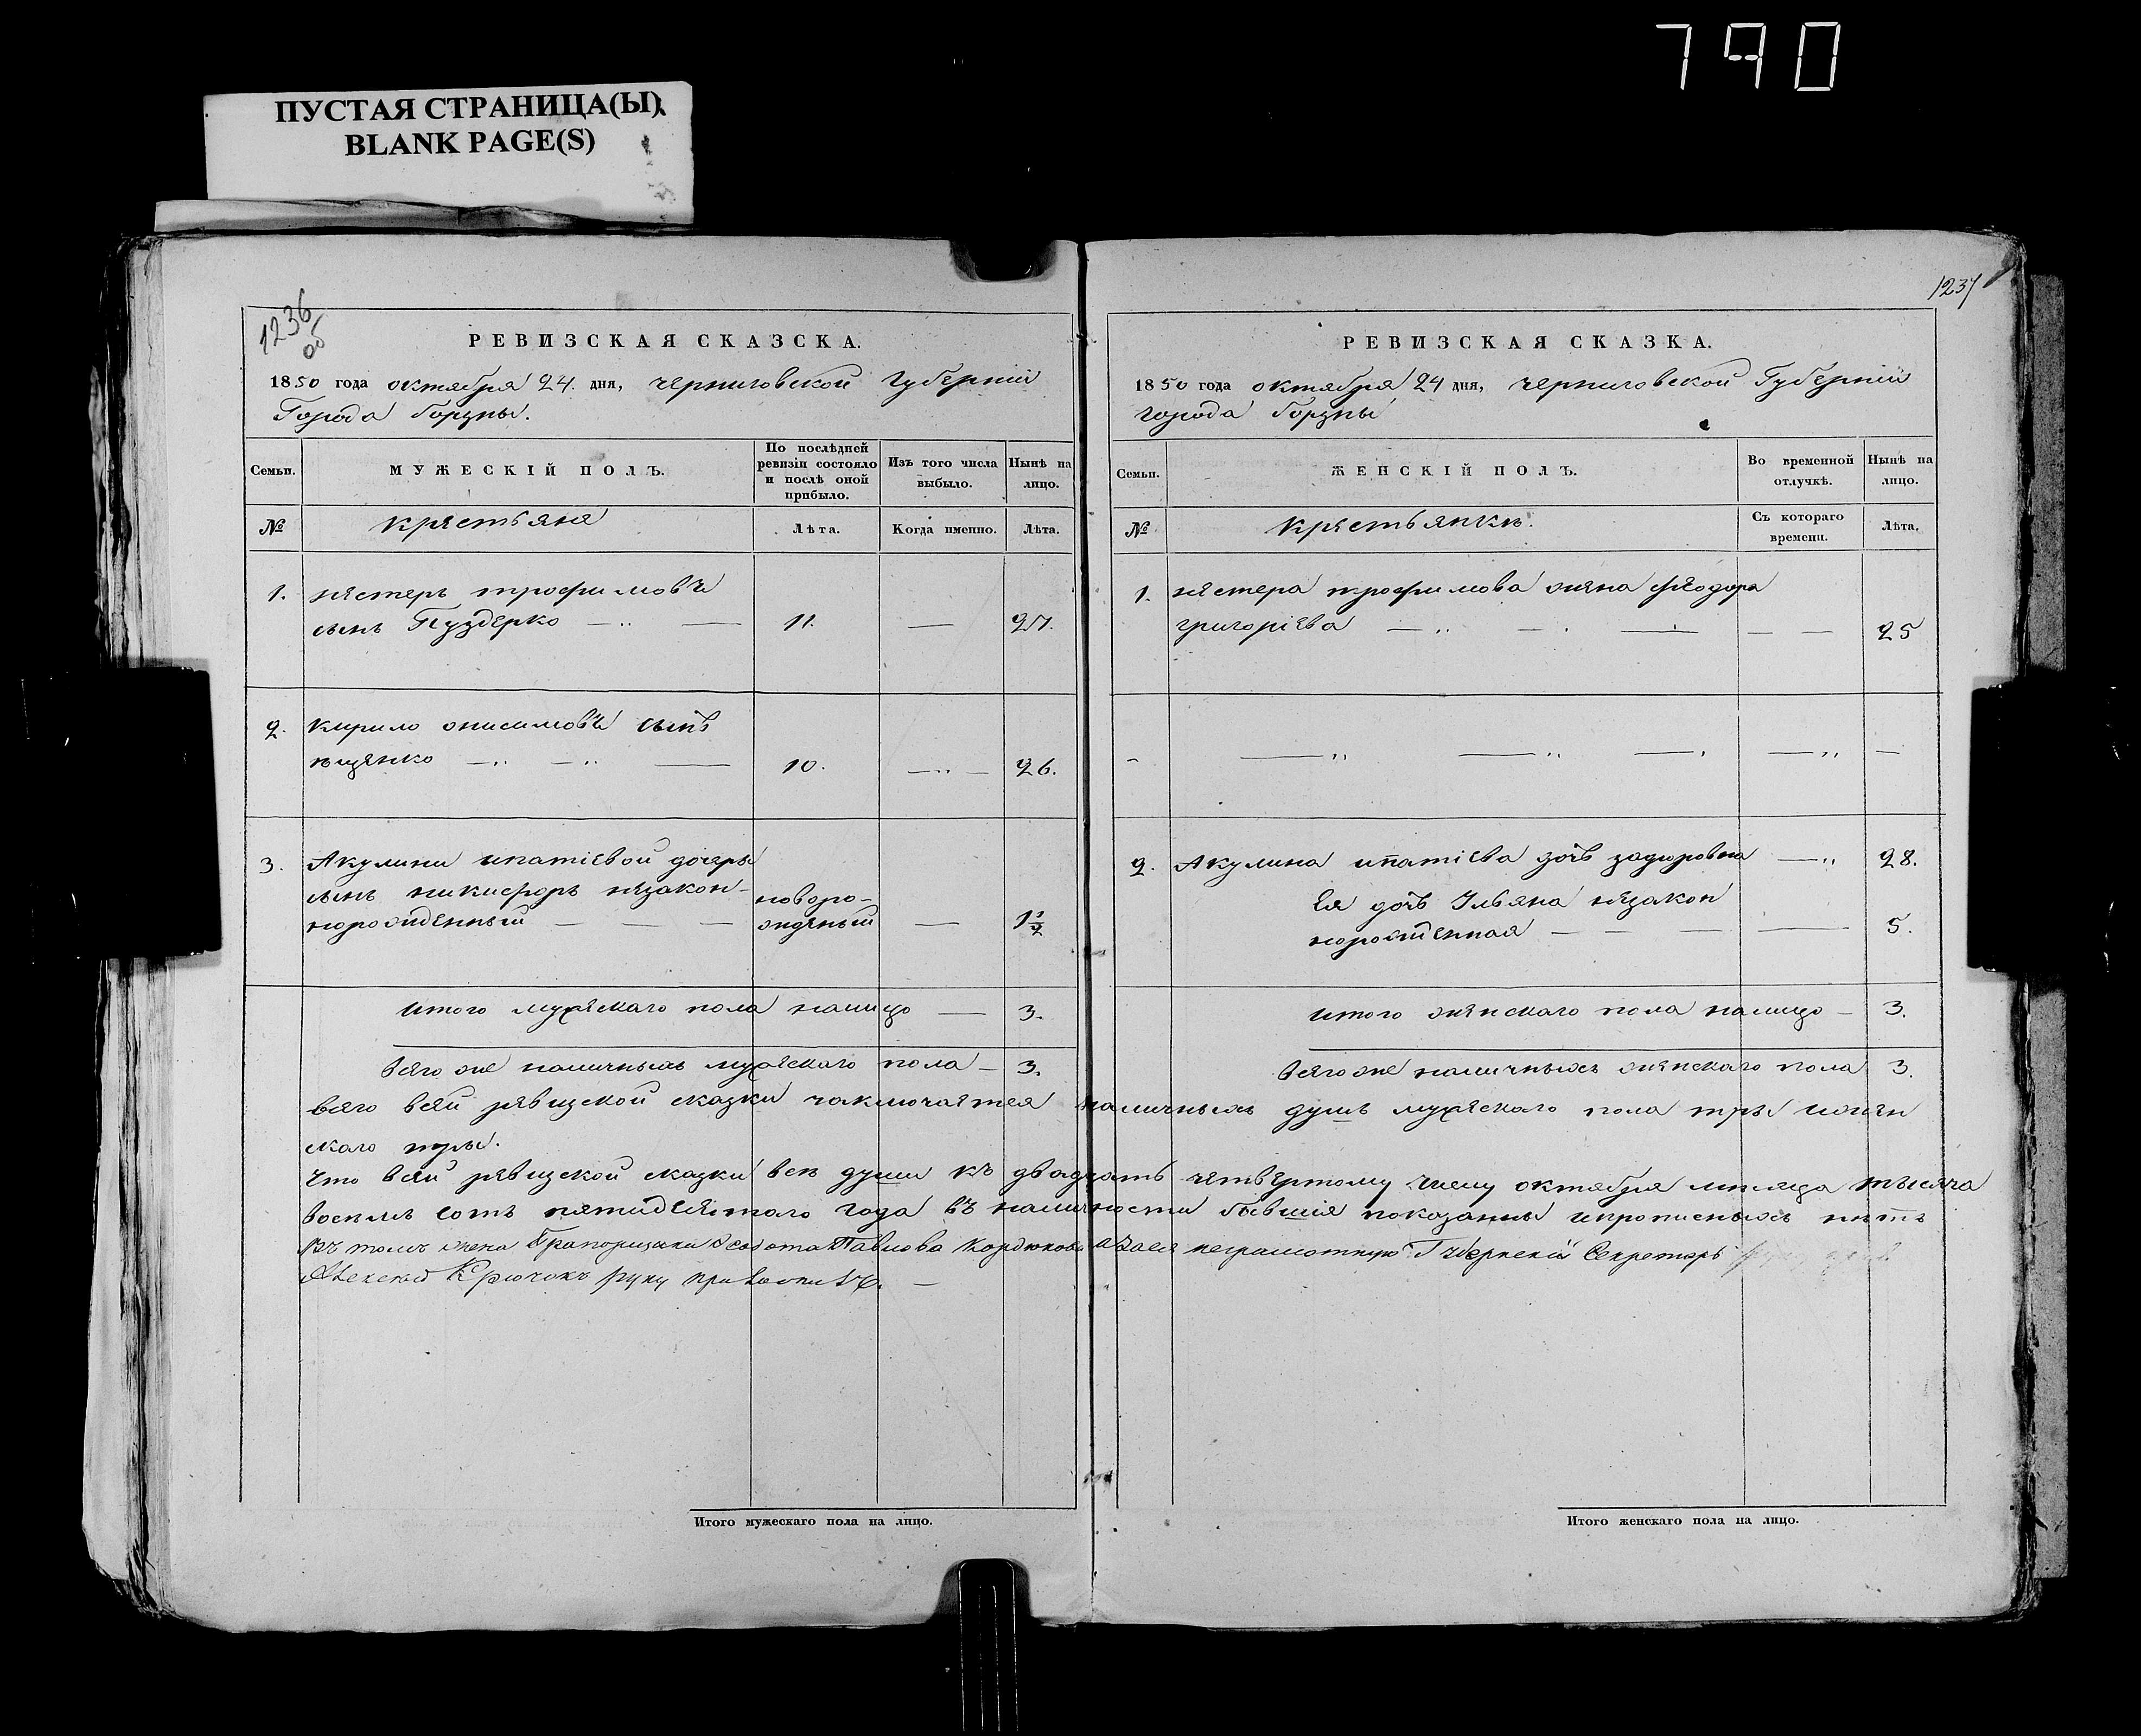 790
ПУСТАЯ СТРАНИЦА(Ы)
BLANK PAGE(S)
1236
об
РЕВИЗСКАЯ СКАЗСКА.
1850 года октября 24. дня, черниговской Губерніи
Города борзны.
Семьи.
МУЖЕСКІЙ ПОЛЪ.
По послѣдней ревизіи состояло и послѣ оной прибыло.
Изъ того числа выбыло.
Нынѣ на лицо.
№
крестьяне
Лѣта.
Когда именно.
Лѣта.
1. нестеръ трофимовъ
сынъ Пуздерко — 11. — 27.
2. кирило онисимовъ сынъ
ященко — 10. — 26.
3. Акулины ипатіевой дочеры
сынъ никифоръ незакон-
норожденный — новоро-
жденый — 1½
итого мужескаго пола налицо — 3.
всего же наличныхъ мужескаго пола — 3.
1237
РЕВИЗСКАЯ СКАЗКА.
1850 года октября 24 дня, черниговской Губерніи
города борзны
Семьи.
ЖЕНСКІЙ ПОЛЪ.
Во временной отлучкѣ.
Нынѣ на лицо.
№
крестьянки.
Съ котораго времени.
Лѣта.
1. нестера трофимова жена феодора
григоріева — — 25
2. Акулина ипатіева дочь задоровна — 28.
Ея дочь Ульяна незакон
норожденная — — 5.
итого женскаго пола налицо — 3.
всего же наличныхъ женскаго пола 3.
всего всей ревизской сказки заключается наличныхъ душъ мужескаго пола три ижен
скаго три.
что всей ревизской сказки все души къ двадцать четвертому числу октября месяца тысяча
восемь сотъ пятидесятого года въ наличности бывшія показанны ипрописныхъ нетъ
Въ томъ жена Прапорщика Федота Павлова Кордюкова азаея неграмотную Губернскій Секретарь
Алексей Крючокъ руку приложилъ. —
Итого мужескаго пола на лицо.
Итого женскаго пола на лицо.